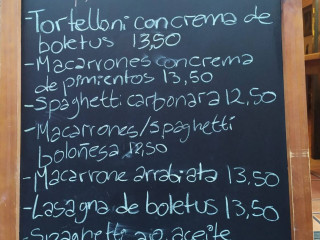 -Tortelloni con crema de
boletus 13,50
-Macarrones con crema
de pimientos 13,50
-Spaghetti carbonara 12,50
-Macarrones/Spaghetti
boloñesa 12,50
-Macarrone arrabiata 13,50
-Lasagna de boletus 13,50
-Spaghetti ajo, aceite